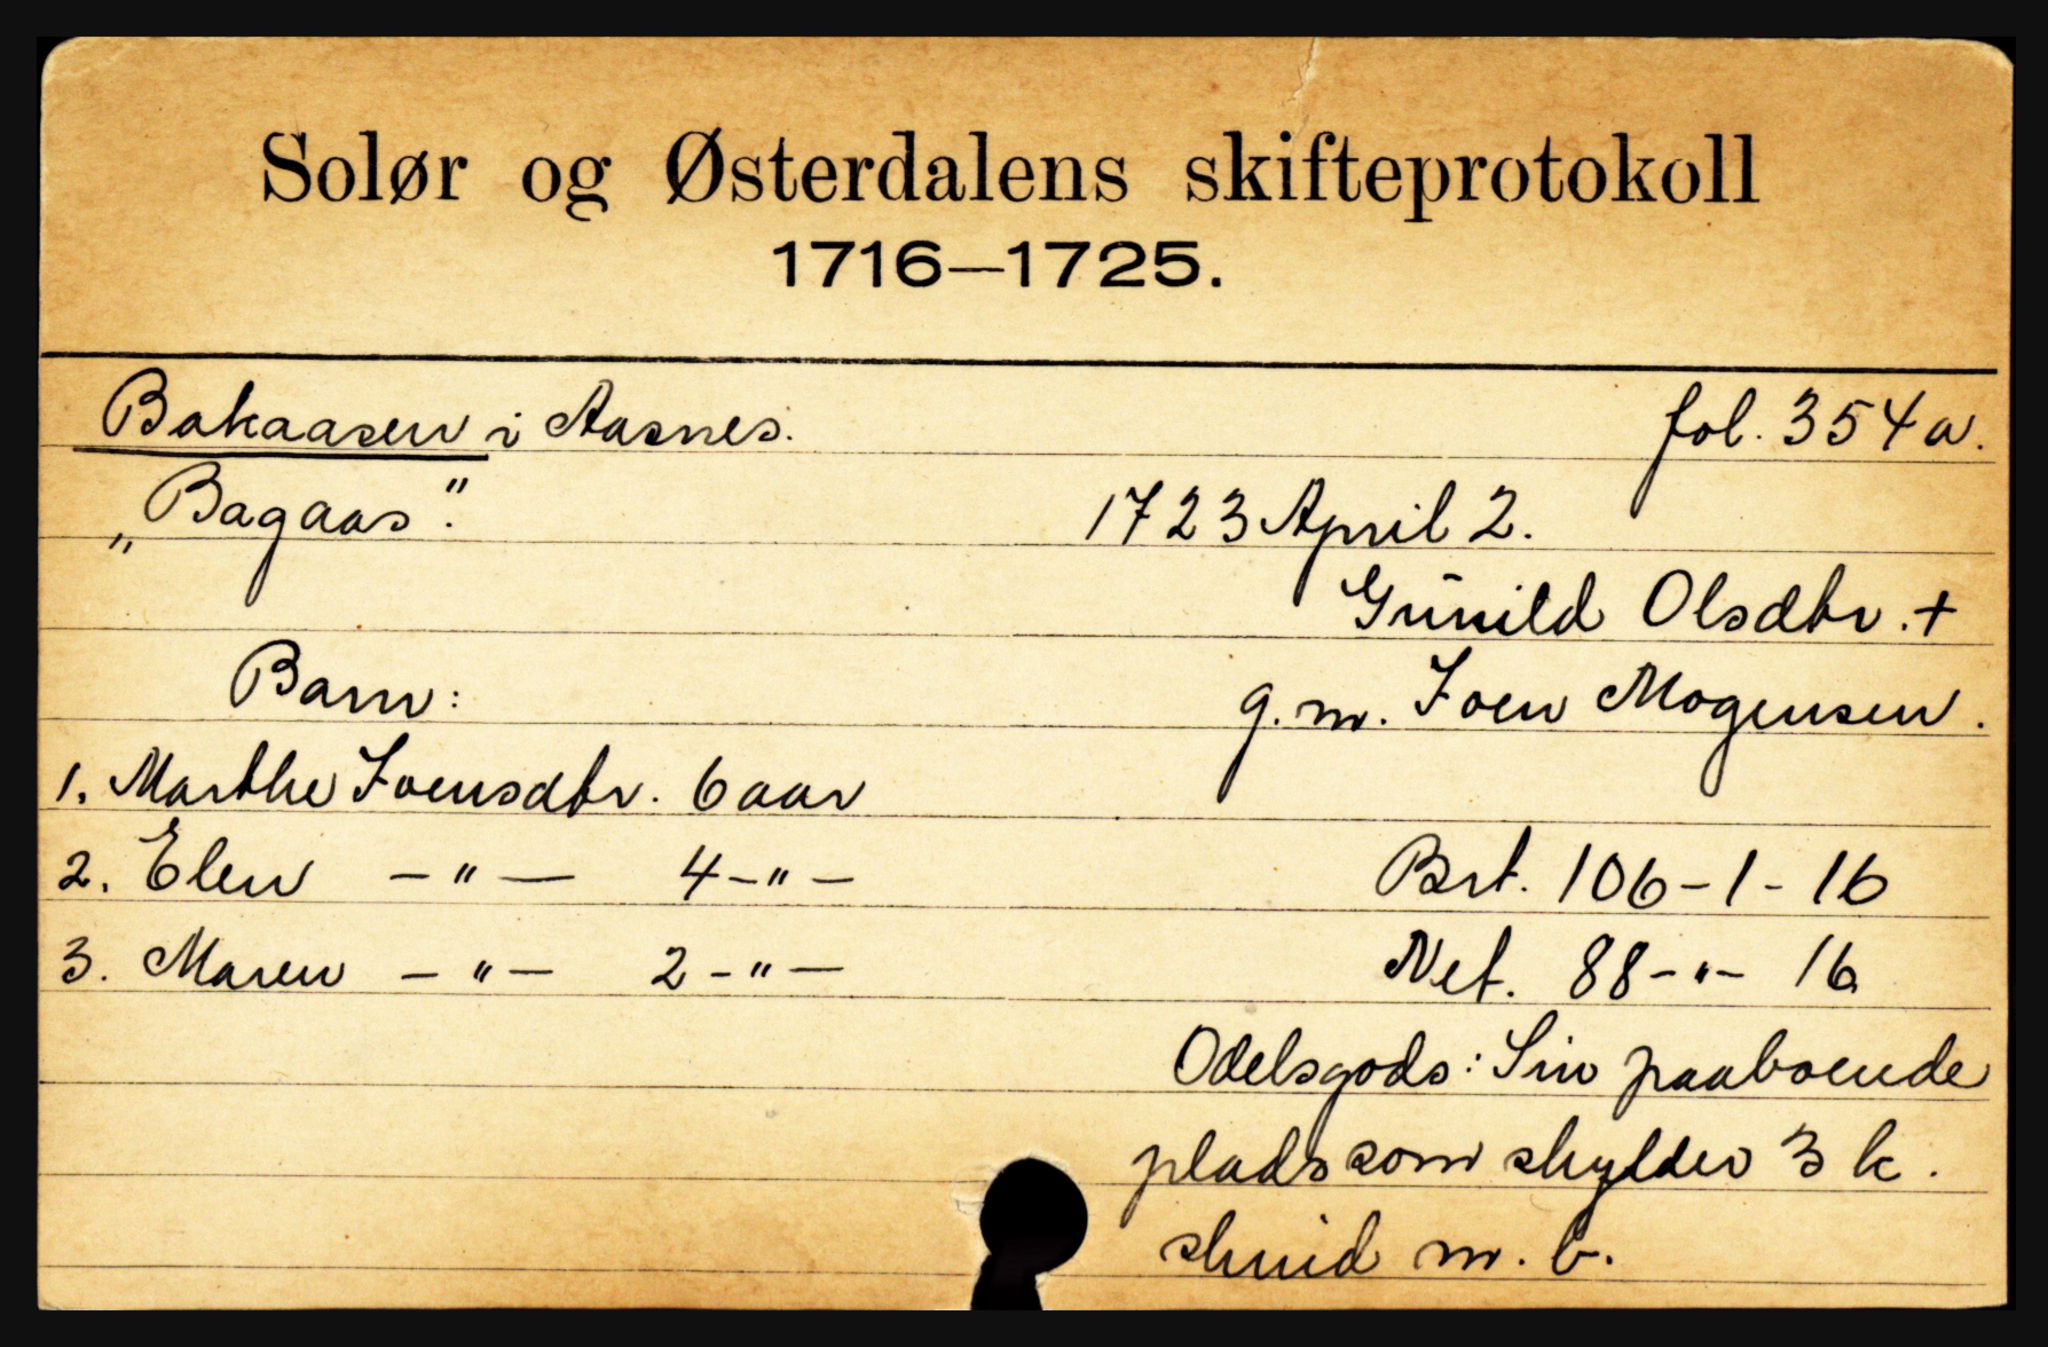 Solør og Østerdalens skifteprotokoll
1716—1725.
Bakaasen i Aasnes. fol. 354a.
„Bagaas". 1723 April 2.
Gūnild Olsdtr. +
Barn: g. m. Joen Mogensen.
1. Marthe Joensdtr. 6 aar
2. Elen — " — 4 — " — Brt. 106-1-16
3. Maren — " — 2 — " — Net. 88-"-16
Odelsgods: Sin paaboende
plads som skylder 3 k.
skind m. b.